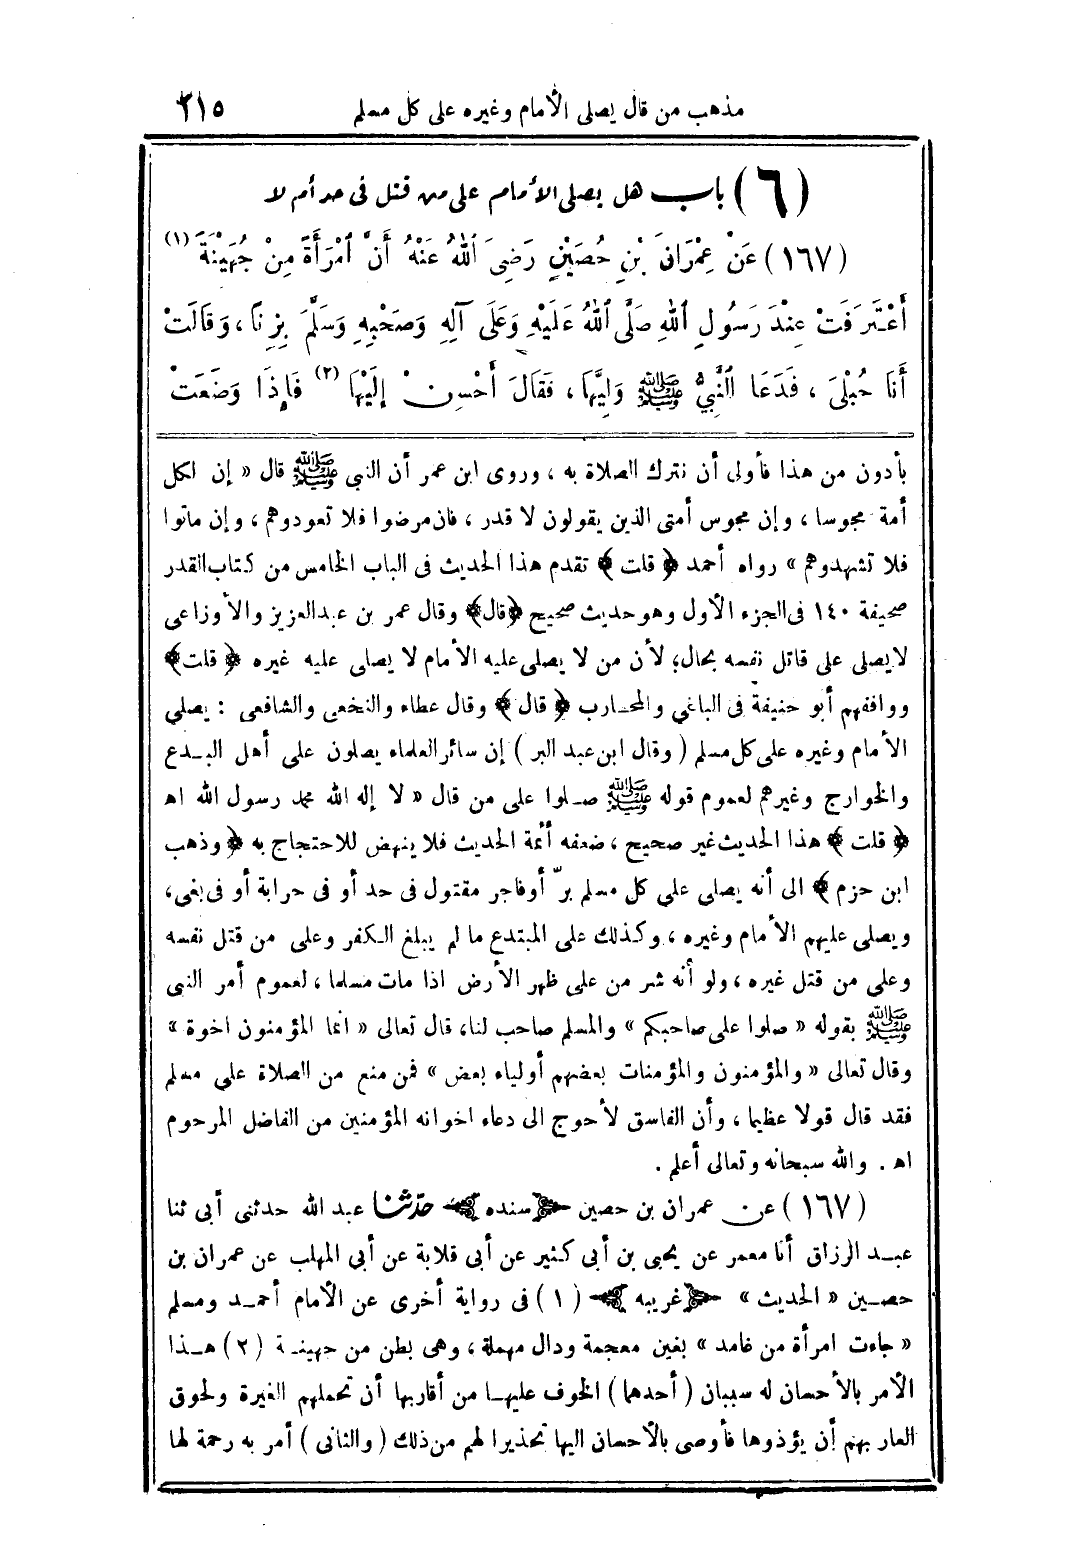 مذهب من قال يصلى الأمام وغيره على كل مسلم ٢١٥
(٦) باب هل يصلى الأمام على من قتل فى حد أم لا
(١٦٧) عَنْ عِمْرَانَ بْنِ حُصَيْنٍ رَضِىَ ٱللهُ عَنْهُ أَنَّ ٱمْرَأَةً مِنْ جُهَيْنَةَ (١)
أَعْتَرَفَتْ عِنْدَ رَسُولِ ٱللهِ صَلَّى ٱللهُ عَلَيْهِ وَعَلَى آلِهِ وَصَحْبِهِ وَسَلَّمَ بِزِنًا، وَقَالَتْ
أَنَا حُبْلَى ، فَدَعَا ٱلنَّبِيُّ ﷺ وَلِيَّهَا، فَقَالَ أَحْسِنْ إِلَيْهَا (٢) فَإِذَا وَضَعَتْ
بأدون من هذا فأولى أن نترك الصلاة به ، وروى ابن عمر أن النبى ﷺ قال « إن لكل
أمة مجوسا ، وإن مجوس أمتى الذين يقولون لا قدر ، فان مرضوا فلا تعودوهم ، وإن ماتوا
فلا تشهدوهم » رواه أحمد ﴿ قلت ﴾ تقدم هذا الحديث فى الباب الخامس من كتاب القدر
صحيفة ١٤٠ فى الجزء الأول وهو حديث صحيح ﴿قال﴾ وقال عمر بن عبدالعزيز والأوزاعى
لا يصلى على قاتل نفسه بحال؛ لأن من لا يصلى عليه الأمام لا يصلى عليه غيره ﴿ قلت﴾
ووافقهم أبو حنيفة فى الباغي والمحارب ﴿ قال ﴾ وقال عطاء والنخعى والشافعى : يصلي
الأمام وغيره على كل مسلم ( وقال ابن عبد البر ) إن سائر العلماء يصلون على أهل البدع
والخوارج وغيرهم لعموم قوله ﷺ صلوا على من قال « لا إله الله محمد رسول الله اه
﴿ قلت ﴾ هذا الحديث غير صحيح ، ضعفه أئمة الحديث فلا ينهض للاحتجاج به ﴿ وذهب
ابن حزم ﴾ الى أنه يصلى على كل مسلم برّ أو فاجر مقتول فى حد أو فى حرابة أو فى بغى،
ويصلى عليهم الأمام وغيره ، وكذلك على المبتدع ما لم يبلغ الكفر وعلى من قتل نفسه
وعلى من قتل غيره ، ولو أنه شر من على ظهر الأرض اذا مات مسلما ، لعموم أمر النبى
ﷺ بقوله « صلوا على صاحبكم » والمسلم صاحب لنا، قال تعالى « انما المؤمنون اخوة »
وقال تعالى « والمؤمنون والمؤمنات بعضهم أولياء بعض » فمن منع من الصلاة على مسلم
فقد قال قولا عظيما ، وأن الفاسق لأحوج الى دعاء اخوانه المؤمنين من الفاضل المرحوم
اه . والله سبحانه وتعالى أعلم .
(١٦٧) عن عمران بن حصين ﴿سنده﴾ حدّثنا عبد الله حدثنى أبى ثنا
عبد الرزاق أنا معمر عن يحيى بن أبى كثير عن أبى قلابة عن أبى المهلب عن عمران بن
حصين « الحديث » ﴿غريبه﴾ (١) فى رواية أخرى عن الأمام أحمد ومسلم
« جاءت امرأة من غامد » بغين معجمة ودال مهملة ، وهى بطن من جهينة (٢) هذا
الأمر بالأحسان له سببان ( أحدهما ) الخوف عليها من أقاربها أن تحملهم الغيرة ولحوق
العار بهم أن يؤذوها فأوصى بالأحسان اليها تحذيرا لهم من ذلك ( والثانى ) أمر به رحمة لها